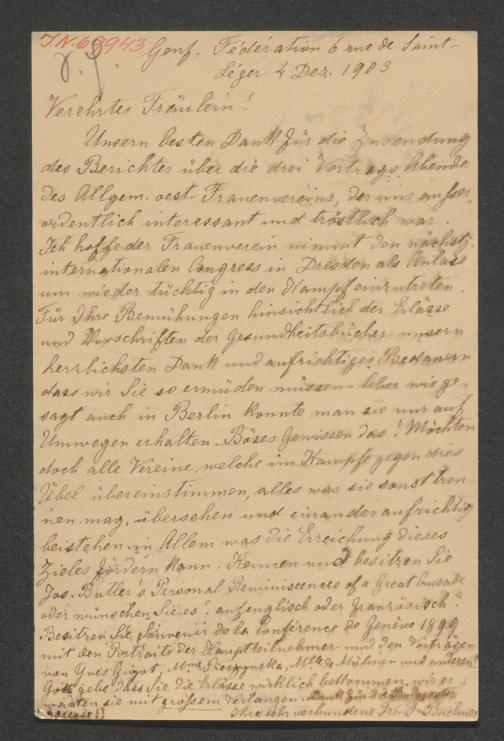 I.N. 69943
Genf, Fédération 6 rue de Saint-
Léger 4 Dez. 1903
Verehrtes Fräulein!
Unsern besten Dank für die Zusendung
des Berichtes über die drei Vortrags Abende
des Allgem. oest. Frauenvereins, der uns ausser-
ordentlich interessant und tröstlich war.
Ich hoffe der Frauenverein nimmt den nächstj.
internationalen Congress in Dresden als Anlass
um wieder tüchtig in den Kampf einzutreten.
Für Ihre Bemühungen hinsichtlich der Erlässe
und Vorschriften der Gesundheitsbücher unsern
herzlichsten Dank und aufrichtiges Bedauern
dass wir Sie so ermüden müssen. Aber wie ge-
sagt auch in Berlin konnte man sie nur auf
Umwegen erhalten. Böses Gewissen das! Möchten
doch alle Vereine, welche im Kampfe gegen dies
Übel übereinstimmen, alles was sie sonst tren
nen mag, übersehen und einander aufrichtig
beistehen in Allem was die Erreichung dieses
Zieles fördern kann. Kennen und besitzen Sie
Jos. Butler's Personal Reminiscences of a Great Crusade
oder wünschen Sie es? auf englisch oder französisch?
Besitzen Sie Souvenir de la Conférence de Genève 1899
mit den Portraits der Hauptteilnehmer und den Vorträgen
von Yves Guyot, Mme Pieczynska, Mlle H. Mülinen und anderen?
Gott gebe dass Sie die Erlässe wirklich bekommen, wir er-
warten sie mit grossem Verlangen. Dank für die
Ihre sehr verbundene